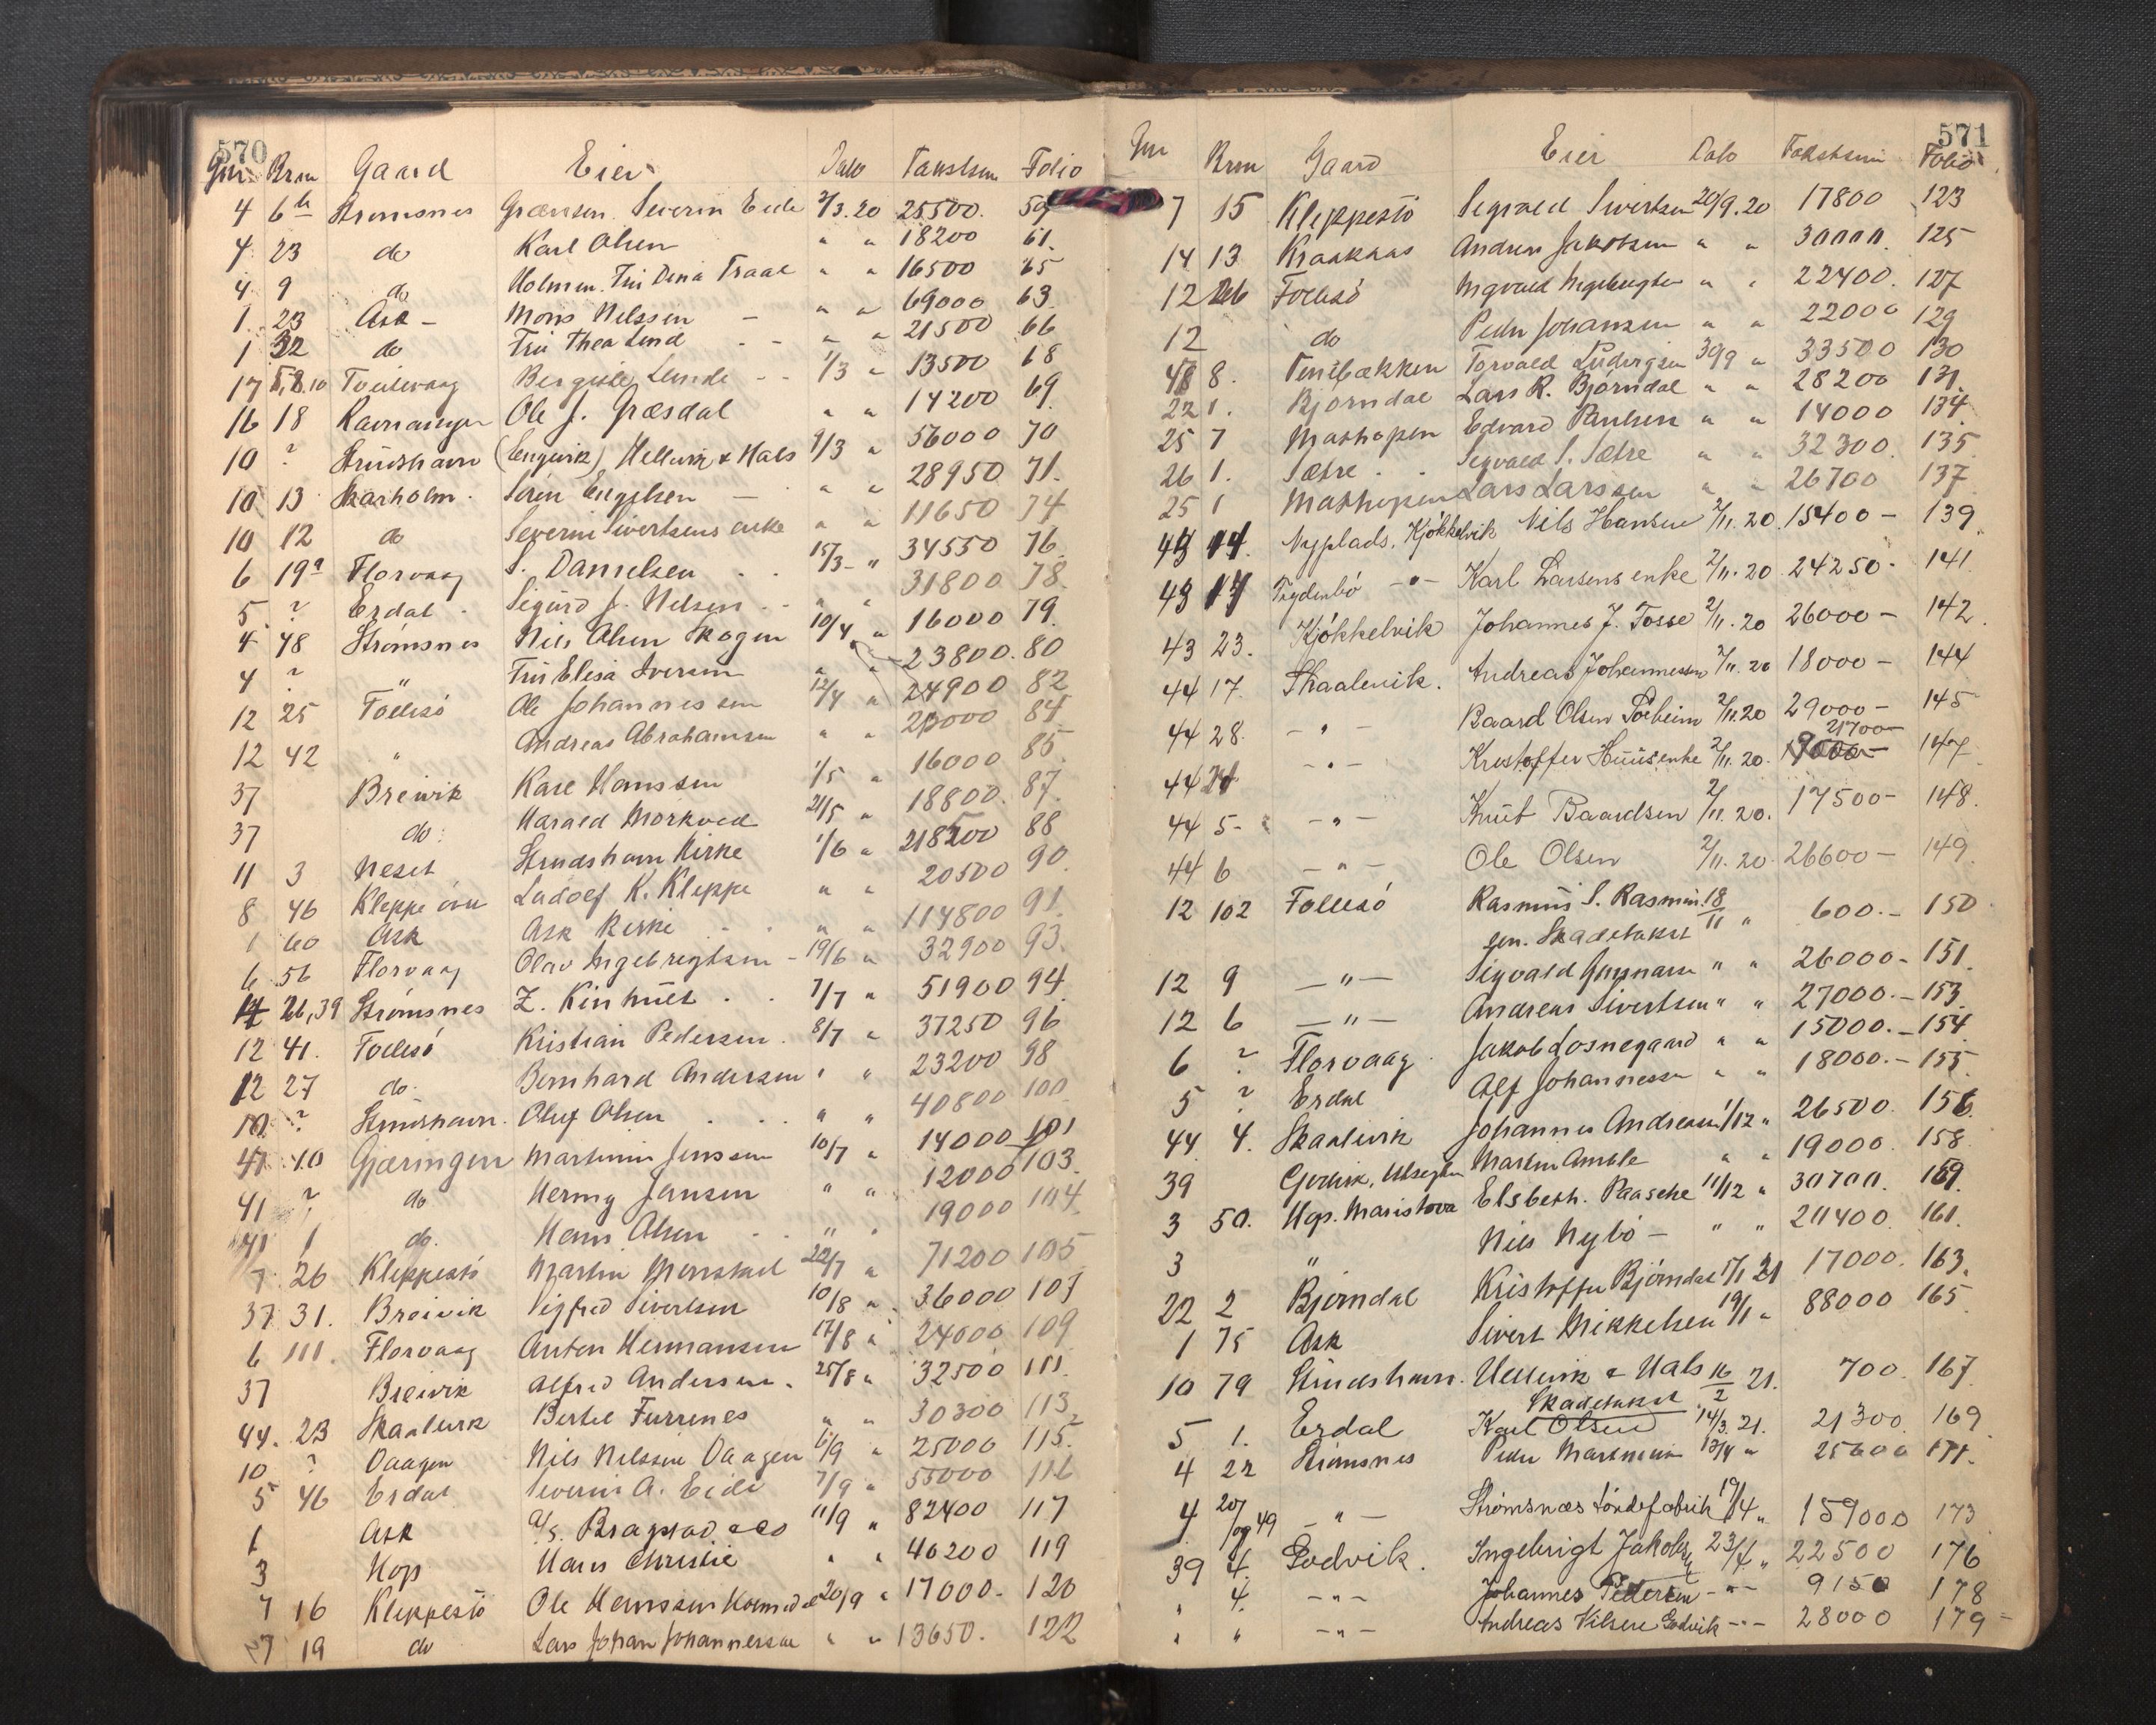 570
Gnr Brn Gaard Eier Dato Takstsum Folio
4 6 b Strømsnes Grænsen Severin Eide 2/3.20 25500. 59
4 23 do Karl Olsen " " 18200 61.
4 9 do Holmen. Fru Dina Traae " " 16500 65
1 23 Ask - Mons Nilssen - " " 69000 63
1 32 do Fru Thea Lind - - " " 21500 66
17 5,8.10 Tveitevaag Bergitte Leinde - - 1/3 " 13500 68
16 18 Ravnanger Ole J. Græsdal " " 14200 69
10 ? Strudshavn (Engevik) Hellevik & Hals 9/3 " 56000 70
10 13 Skarholm. Sören Engelsen - " " 28950 71.
10 12 do Severin Sivertsens enke " " 11650 74
6 19a Florvaag S. Danielsen . . 15/3- " 34550 76
5 ? Erdal . Sigurd J. Nilsen . . " " 31800 78
4 48 Strømsnes Nils Olsen Skogen 10/4 " 16000 79.
4 ? " Fru Elisa Iversen " " 23800. 80
12 25 Follesö Ole Johannessen 12/4 " 24900 82
12 42 " Andreas Abrahamsen " " 20000 84
37 Breivik Kare Hanssen 1/5 " 16000 85
37 do. Harald Mørkved 21/5 " 18800. 87
11 3 Neset Strudshavn Kirke 1/6 " 218500 88
8 46 Kleppe övre Ladolf K. Kleppe " " 20500 90
1 60 Ask Ask Kirke . . " " 114800 91
6 56 Florvaag Olav Ingebregtsen - 19/6 " 32900 93
4 26,39 Strømsnes Z. Kinhult . . 7/7 " 51900 94
12 41. Follesö Kristian Pedersen. 8/7 " 37250 96
12 27 do. Bernhard Andersen " " 23200 98
10 ? Strudshavn. Oluf Olsen . . . " " 40800 100
41 10 Gjæringen Martinus Jenssen 10/7 " 14000 101
41 ? do Herny Jansen " " 12000 103
41 1 do. Hans Olsen . . " " 19000 104
7 26 Kleppestö Martin Monstad 22/7 " 71200 105
37 31. Breivik Sigfred Sivertsen 10/8 " 36000 107
6 111. Florvaag Anton Hermansen 17/8 " 24000 109
37 Breivik Alfred Andersen. 25/8 " 32500 111
44. 23 Skaalevik Bertel Furrenes " " 30300 113
10 ? Vaagen Nils Nilssen Vaagen 6/9 " 25000 115.
5 46 Erdal Severin A. Eide 7/9 " 55000 116
1 Ask a/s. Bragstad & Co 11/9 " 82400 117
3 Hop Hans Christie " " 40200 119
7 16 Kleppestö Ole Hanssen 20/9 " 17000. 120
7 19 do Lars Johan Johannessen " " 13650. 122
571
Gnr Brn Gaard Eier Dato Takstsum Folio
7 15 Kleppestö Sigvald Sivertsen 20/9.20 17800 123
14 13 Kraaknas Andreas Jakobsen " " 30000. 125
12 26 Follesö Ingvald Ingebregtsen " " 22400. 127
12 do Peder Johansen " " 22000 129
48 8. Tenebækken Torvald Ludvigsen 30/9 " 33500 130
22 1. Bjørndal Lars R. Bjørndal " " 28200 131.
25 7 Mathopen Edvard Paulsen " " 14000 134
26 1. Sætre . . Sigvald S. Sætre " " 32300. 135
25 1 Mathopen Lars Larssen " " 26700 137
43 14. Nyplads. Kjökkelvik Nils Hansen 2/11.20. 15400 - 139
43 17 -"- Karl Larsens enke 2/11.20 24250- 141
43 23. Kjökkelvik Johannes J. Tosse 2/11.20 26000 - 142
44 17. Skaalevik. Andreas Johannessen 2/11.20 18000 - 144
44 28. -"- Baard Olsen 2/11.20 29000 - 145
44 -"- Kristoffer 2/11.20. 21700 147
44 5- -"- Knut Baardsen 2/11.20. 17500- 148.
44 6 -"- Ole Olsen 2/11.20 26600- 149.
12 102 Follesö Rasmus S. Rasmus. 18/11 " 600.- 150
sen. Skadetakst
12 9 -"- Sigvald Gunnarsen " " 26000- 151.
12 6 -"- Andreas Sivertsen " " 27000.- 153
6 ? Florvaag Jakob Losnegaard " " 15000.- 154
5 ? Erdal Alf Johannessen " " 18000.- 155
44 4. Skaalevik Johannes Andreasen 1/12 " 26500. 156.
39 Godvik, Martin Amble " " 19000. 158
3 50. Hop. Maristova Elsbeth. Paasche 11/12 " 30700. 159.
3 " Nils Nybö - " " 20400. 161.
22 2 Bjørndal Kristoffer Bjørndal 17/1 21 17000. 163.
1 75 Ask Sivert Mikkelsen 19/1 " 88000 165
10 79 Strudshavn. Hellevik & Hals 16/2 21. 700. 167
Skadetakst
5 1. Erdal Karl Olsen 14/3.21. 21300. 169
4 22 Strømsnes Peder Martinsen 13/4 " 25600 171.
4 20/og 49 -"- Strømsnæs töndefabrik 19/4 " 159000 173
39 4. Godvik. Ingebrigt Jakobsen 23/4 " 22500 176
" 4. -"- Johannes Pedersen -"- 9150 178
" " -"- Andreas Nilsen Godvik -"- 28000 179-